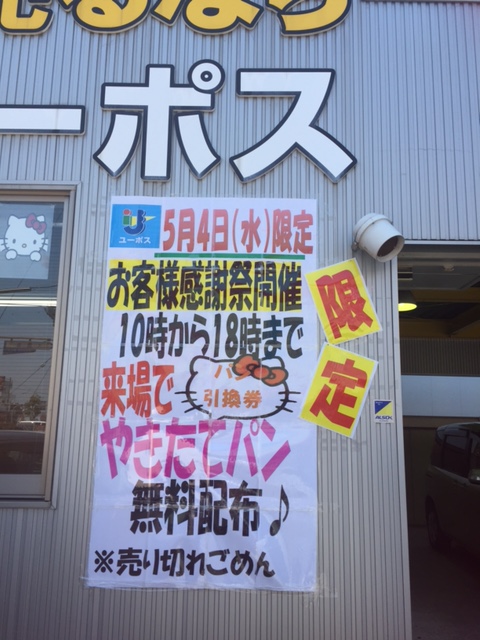 売るなら
ーポス
ユーポス
5月4日(水)限定
お客様感謝祭開催
10時から18時まで
来場で
パン
引換券
限
定
やきたてパン
無料配布♪
※売り切れごめん
ALSOK